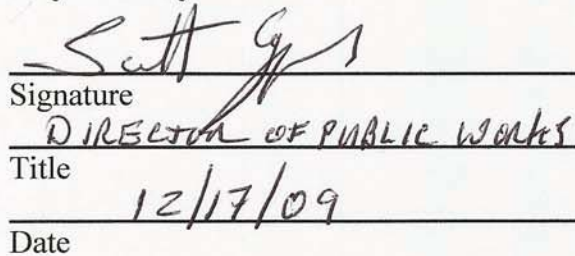 Scott
Signature
DIRECTOR OF PUBLIC WORKS
Title
12/17/09
Date